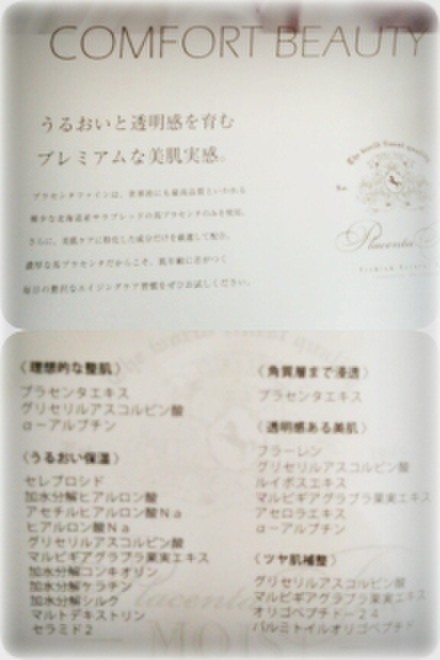 COMFORT BEAUTY
うるおいと透明感を育む
プレミアムな美肌実感。
プラセンタファインは、世界的にも最高品質といわれる
稀少な北海道産サラブレッドの馬プラセンタのみを使用。
さらに、美肌ケアに特化した成分だけを厳選して配合。
濃厚な馬プラセンタだからこそ、肌年齢に差がつく
毎日の贅沢なエイジングケア習慣をぜひお試しください。
The world finest quality
Placenta
〈理想的な整肌〉
プラセンタエキス
グリセリルアスコルビン酸
α－アルブチン
〈うるおい保湿〉
セレブロシド
加水分解ヒアルロン酸
アセチルヒアルロン酸Na
ヒアルロン酸Na
グリセリルアスコルビン酸
マルピギアグラブラ果実エキス
加水分解コンキオリン
加水分解ケラチン
加水分解シルク
マルトデキストリン
セラミド2
〈角質層まで浸透〉
プラセンタエキス
〈透明感ある美肌〉
フラーレン
グリセリルアスコルビン酸
ルイボスエキス
マルピギアグラブラ果実エキス
アセロラエキス
α－アルブチン
〈ツヤ肌補整〉
グリセリルアスコルビン酸
マルピギアグラブラ果実エキス
オリゴペプチド－24
パルミトイルオリゴペプチド
Placenta
MOIST